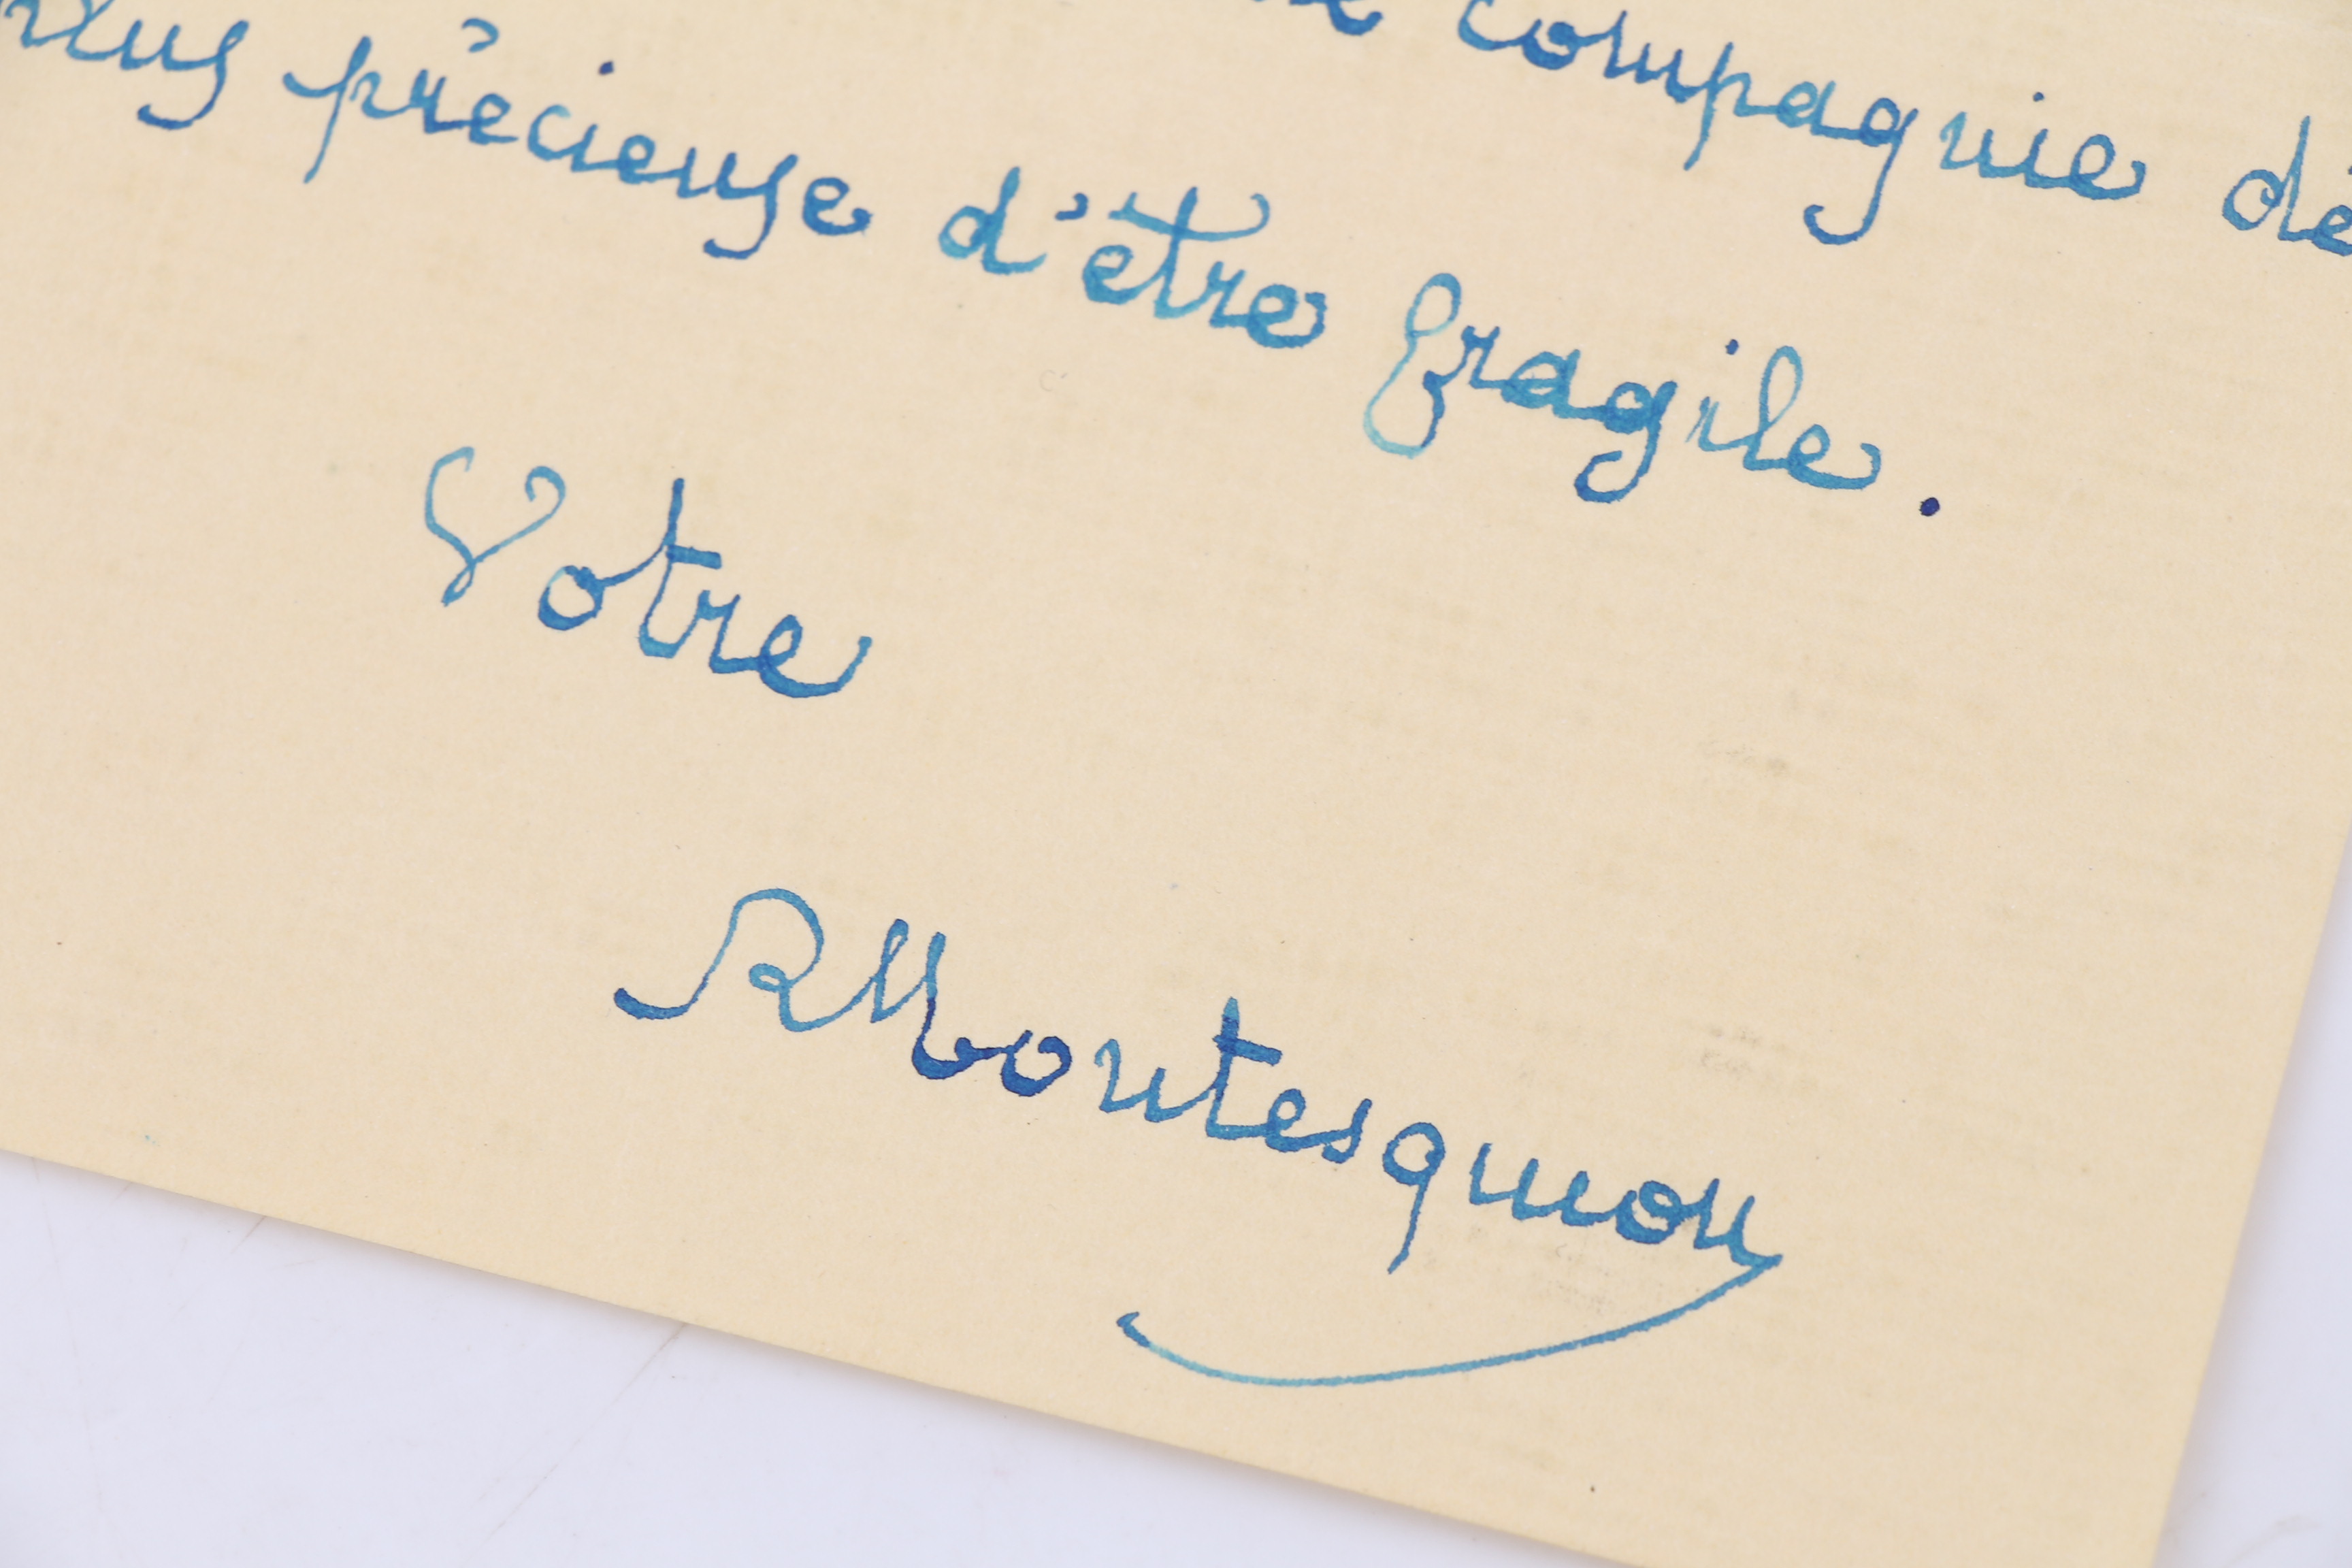 compagnie de
plus précieuse d'être fragile.
Votre
RMontesquiou